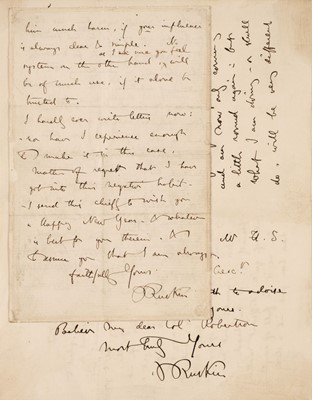 him much harm, if your influence
is always clear & simple. It
as I am sure you feel
system on the other hand will
be of much use, if it alone be
trusted to.
I hardly ever write letters now:
nor have I experience enough
to make it in this case.
matter of regret that I have
got into this negative habit.
I send this chiefly to wish you
a Happy New Year & whatever
is best for you therein. &
to assure you that I am always
faithfully Yours
J Ruskin
and am now only coming
a little round again: but
what I am doing or shall
do will be very different
U.S.
to advise
yours.
Believe my dear Col Robertson
most truly Yours
J Ruskin